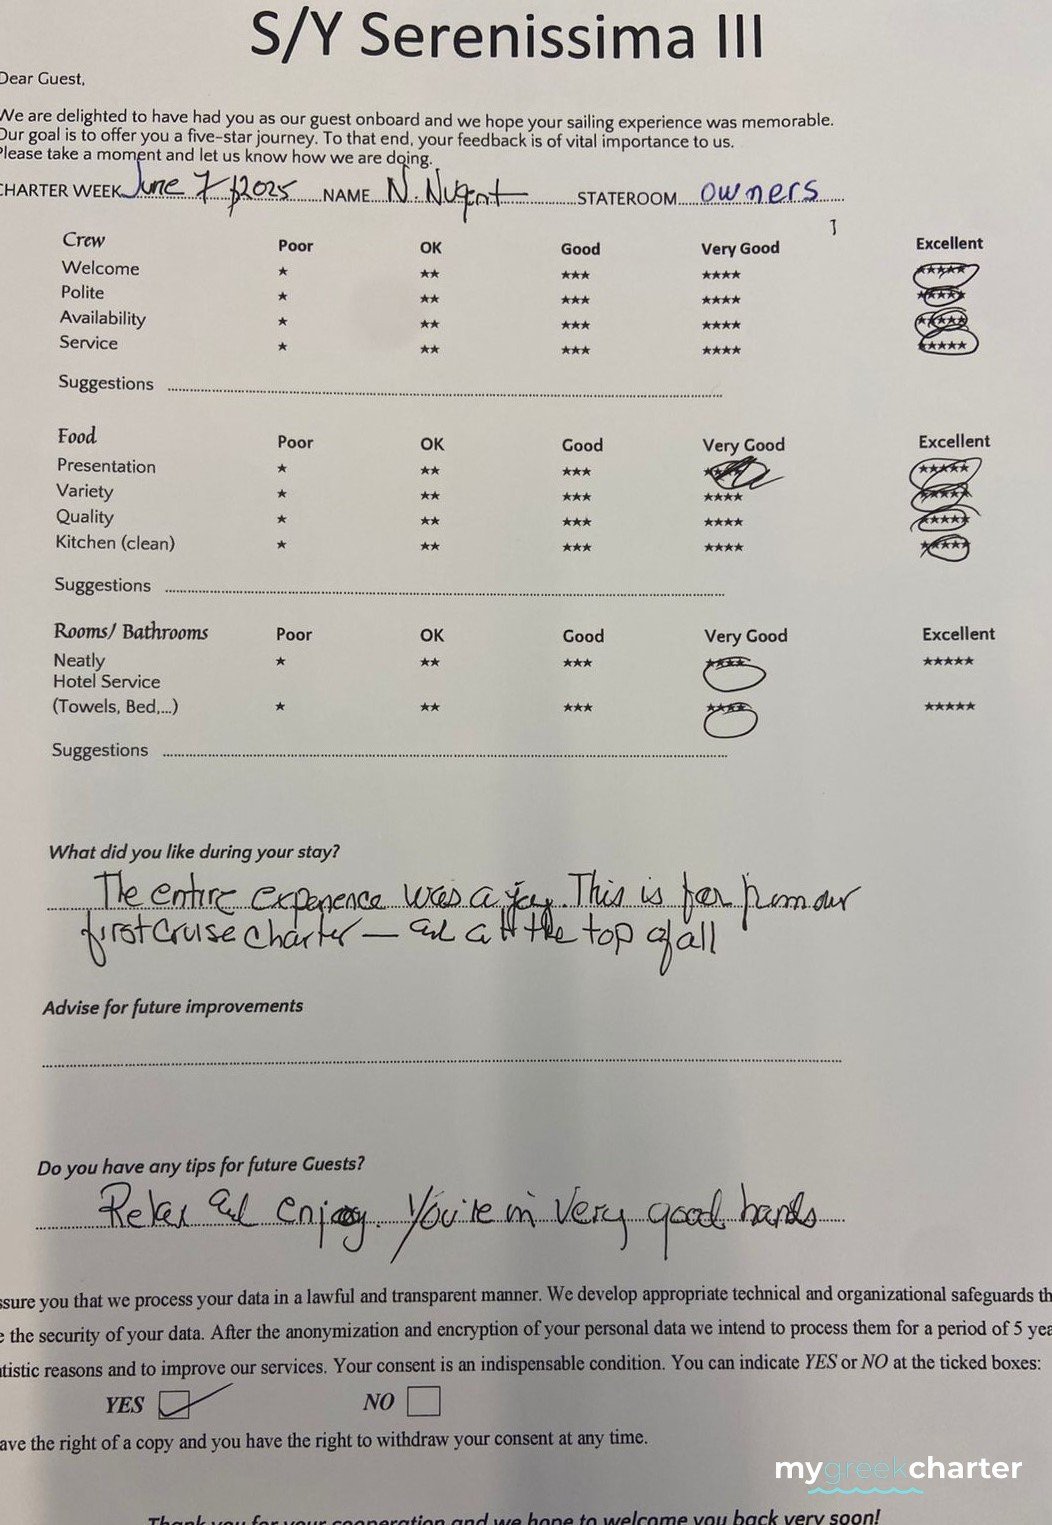 S/Y Serenissima III
Dear Guest,
We are delighted to have had you as our guest onboard and we hope your sailing experience was memorable.
Our goal is to offer you a five-star journey. To that end, your feedback is of vital importance to us.
Please take a moment and let us know how we are doing.
CHARTER WEEK June 7 2025 NAME N. Nugent STATEROOM owners
Crew Poor OK Good Very Good Excellent
Welcome ★ ★★ ★★★ ★★★★ ★★★★★
Polite ★ ★★ ★★★ ★★★★ ★★★★★
Availability ★ ★★ ★★★ ★★★★ ★★★★★
Service ★ ★★ ★★★ ★★★★ ★★★★★
Suggestions
Food Poor OK Good Very Good Excellent
Presentation ★ ★★ ★★★ ★★★★ ★★★★★
Variety ★ ★★ ★★★ ★★★★ ★★★★★
Quality ★ ★★ ★★★ ★★★★ ★★★★★
Kitchen (clean) ★ ★★ ★★★ ★★★★ ★★★★★
Suggestions
Rooms/ Bathrooms Poor OK Good Very Good Excellent
Neatly ★ ★★ ★★★ ★★★★ ★★★★★
Hotel Service
(Towels, Bed,...) ★ ★★ ★★★ ★★★★ ★★★★★
Suggestions
What did you like during your stay?
The entire experience was a joy. This is far from our
first cruise charter — and at the top of all
Advise for future improvements
Do you have any tips for future Guests?
Relax and enjoy. You're in very good hands
ssure you that we process your data in a lawful and transparent manner. We develop appropriate technical and organizational safeguards th
e the security of your data. After the anonymization and encryption of your personal data we intend to process them for a period of 5 yea
tistic reasons and to improve our services. Your consent is an indispensable condition. You can indicate YES or NO at the ticked boxes:
YES NO
ave the right of a copy and you have the right to withdraw your consent at any time.
mygreekcharter
Thank you for your cooperation and we hope to welcome you back very soon!